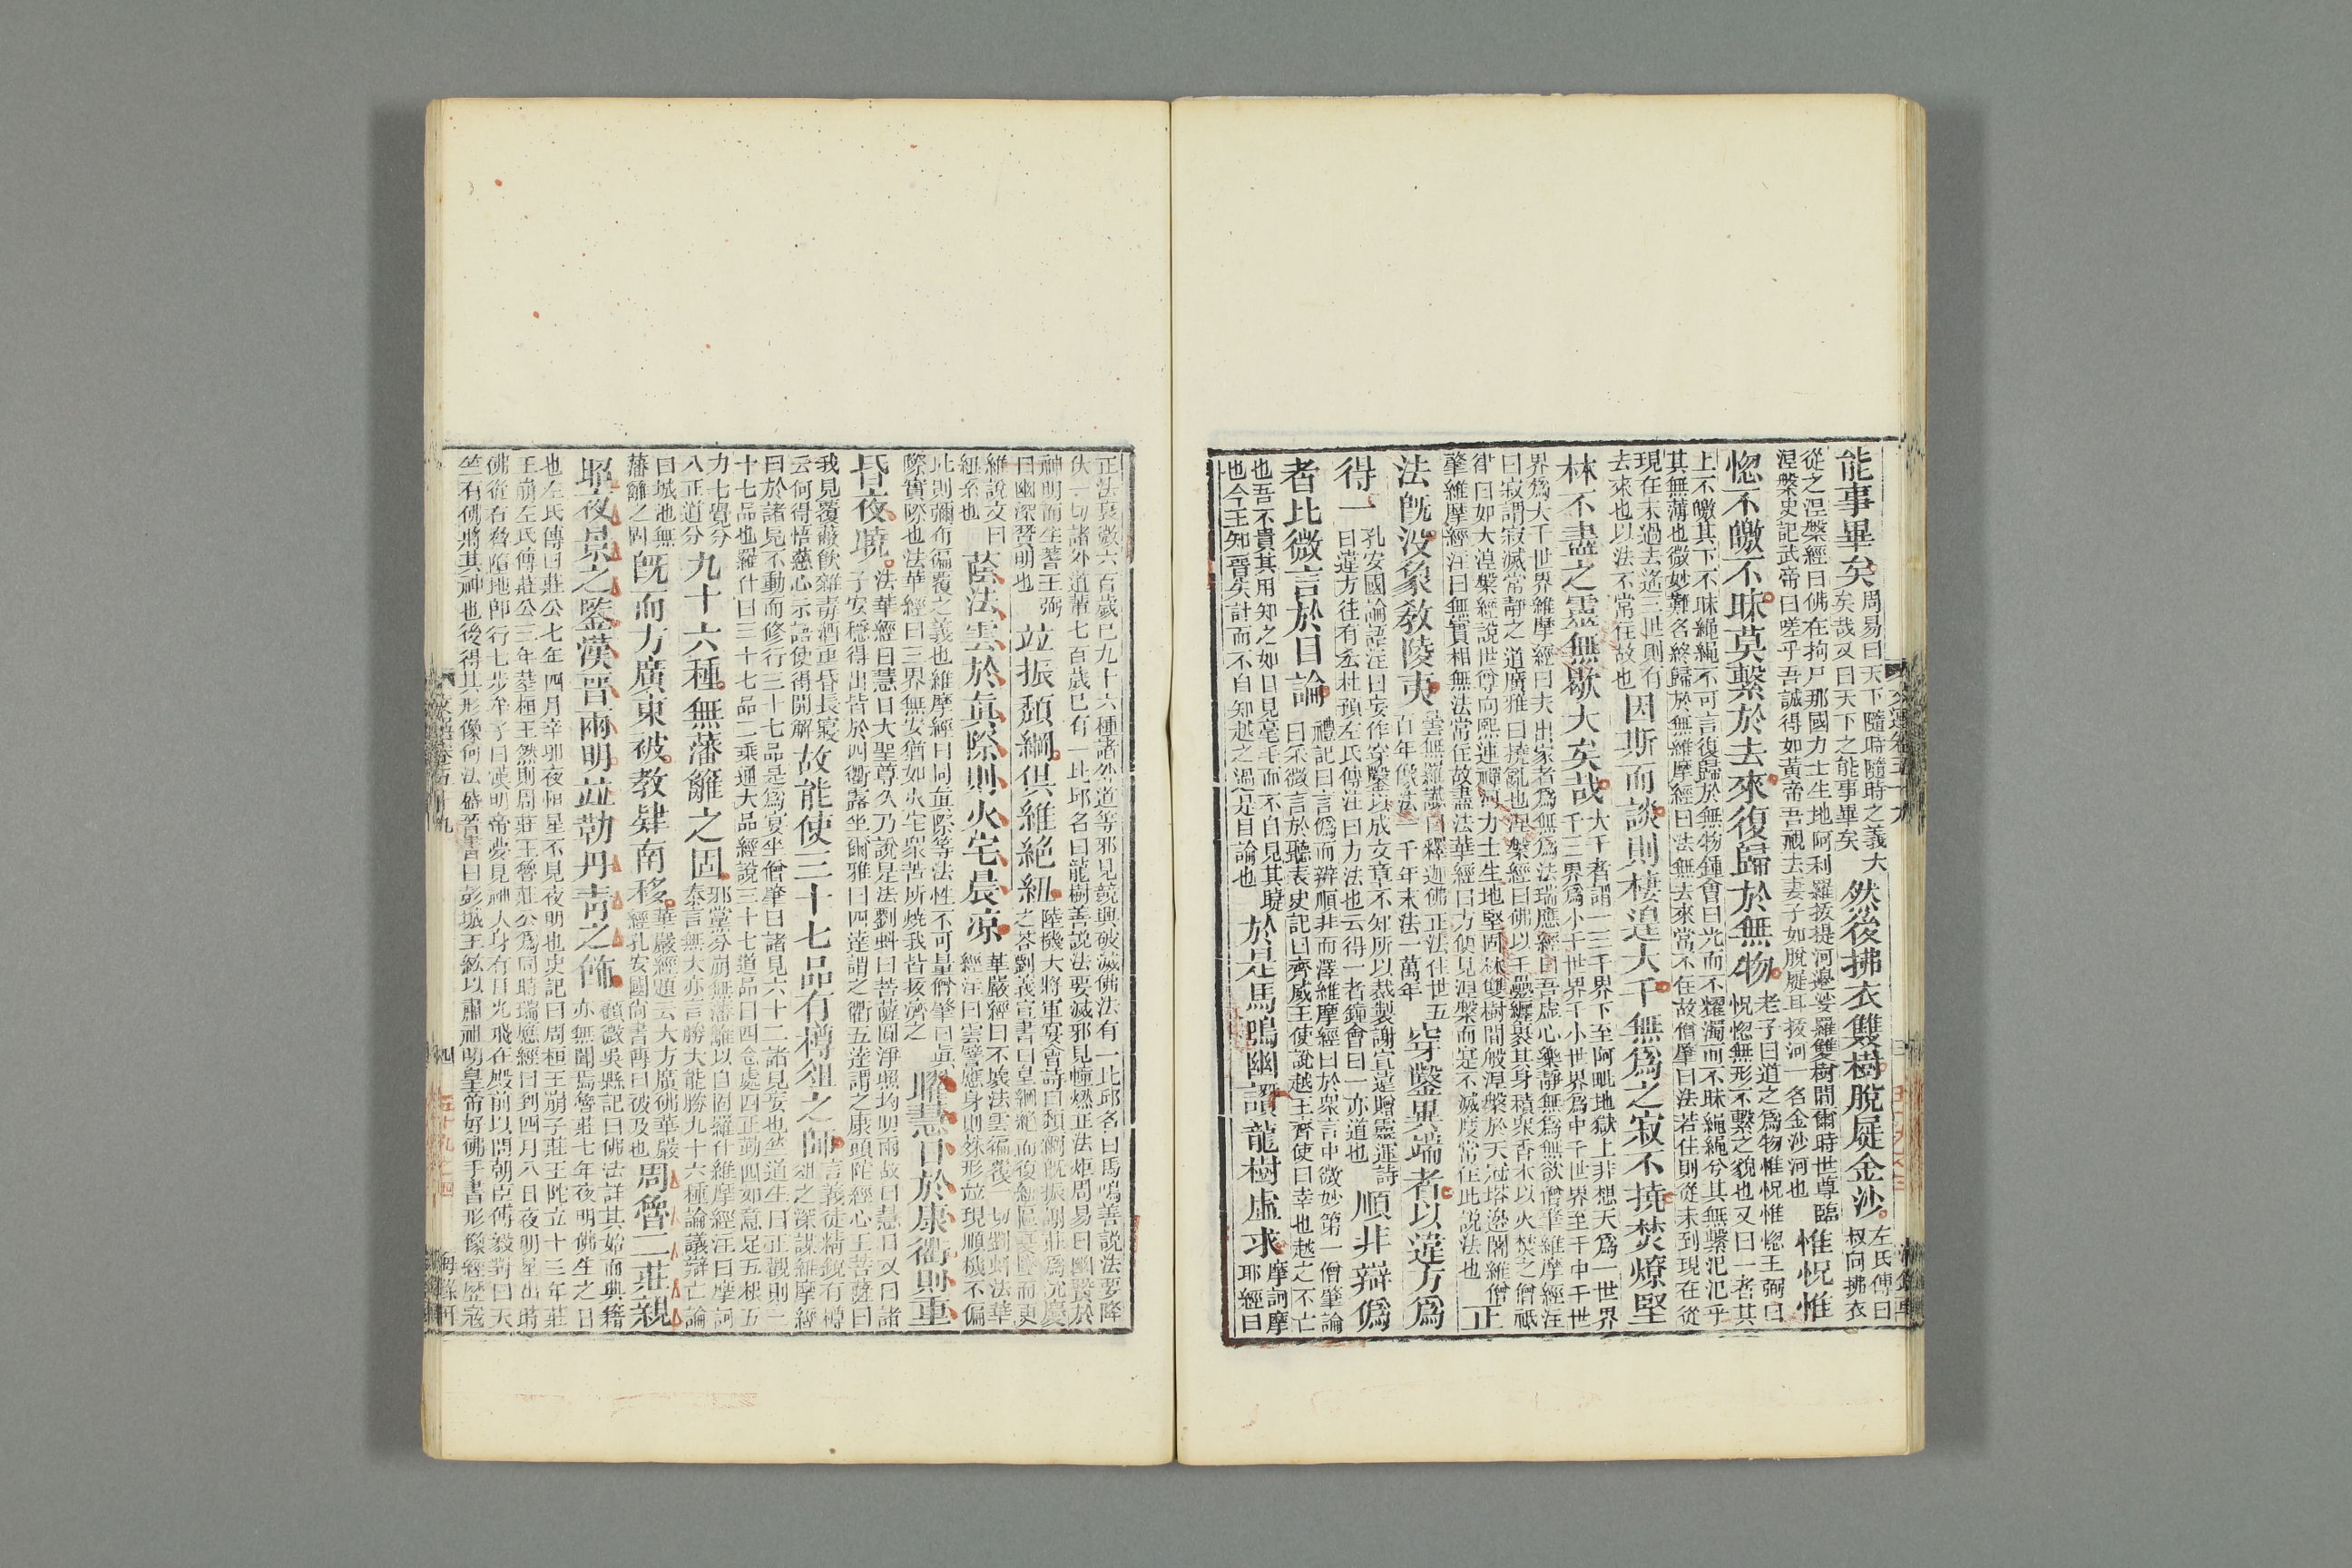 能事畢矣周易曰天下隨時隨時之義大矣哉又曰天下之能事畢矣然後拂衣雙樹脫屣金沙左氏傳曰叔向拂衣
從之涅槃經曰佛在拘尸那國力士生地阿利羅拔提河邊娑羅雙樹間爾時世尊臨涅槃史記武帝曰嗟乎吾誠得如黃帝吾視去妻子如脫屣耳拔河一名金沙河也惟怳惟
惚不皦不昧莫繫於去來復歸於無物老子曰道之爲物惟怳惟惚王弼曰怳惚無形不繫之貌也又曰一者其
上不皦其下不昧繩繩不可言復歸於無物鍾會曰光而不耀濁而不昧繩繩兮其無繫汜汜乎其無薄也微妙難名終歸於無維摩經曰法無去來常不住故僧肇曰法若住則從未到現在從
現在未過去遙三世則有去來也以法不常住故也因斯而談則棲遑大千無爲之寂不撓焚燎堅
林不盡之靈無歇大矣哉大千者謂一三千界下至阿毗地獄上非想天爲一世界千三界爲小千世界千小世界爲中千世界至千中千世
界爲大千世界維摩經曰夫出家者爲無爲法瑞應經曰吾虛心樂靜無爲無欲僧肇維摩經注曰寂謂寂滅常靜之道廣雅曰撓亂也涅槃經曰佛以千疊纏裹其身積衆香木以火焚之僧祇
律曰如大涅槃經說世尊向熙連禪河力士生地堅固林雙樹間般涅槃於天冠塔邊闍維僧肇維摩經注曰無實相無法常住故盡法華經曰方便見涅槃而定不滅度常住此說法也正
法旣沒象敎陵夷曇無羅讖曰釋迦佛正法住世五百年像法一千年末法一萬年穿鑿異端者以違方爲
得一孔安國論語注曰妄作穿鑿以成文章不知所以裁製謝宣遠贈靈運詩曰違方往有吝杜預左氏傳注曰方法也云得一者鍾會曰一亦道也順非辯僞
者比微言於目論禮記曰言僞而辯順非而澤維摩經曰於衆言中微妙第一僧肇論曰采微言於聽表史記曰齊威王使說越王齊使曰幸也越之不亡
也吾不貴其用知之如目見毫毛而不自見其睫也今王知晉失計而不自知越之過是目論也於是馬鳴幽讚龍樹虛求摩訶摩耶經曰
正法衰微六百歲已九十六種諸外道等邪見競興破滅佛法有一比邱名曰馬鳴善說法要降伏一切諸外道輩七百歲已有一比邱名曰龍樹善說法要滅邪見幢燃正法炬周易曰幽贊於
神明而生蓍王弼曰幽深贊明也竝振頹綱俱維絕紐陸機大將軍宴會詩曰頹綱旣振謝莊爲沈慶之荅劉義宣書曰皇綱絕而復紐區夏墜而更
維說文曰紐系也蔭法雲於眞際則火宅晨涼華嚴經曰不壞法雲徧覆一切劉虬法華經注曰雲譬應身則殊形竝現順機不偏
此則彌布徧覆之義也維摩經曰同眞際等法性不可量僧肇曰眞際實際也法華經曰三界無安猶如火宅衆苦所燒我皆拔濟之曜慧日於康衢則重
昏夜曉法華經曰慧日大聖尊久乃說是法劉虬曰菩薩圓淨照均明兩故曰慧日又曰諸子安穩得出皆於四衢露坐爾雅曰四達謂之衢五達謂之康頭陀經心王菩薩曰
我見覆蔽飲雜毒酒重昏長寢云何得悟慈心示語使得開解故能使三十七品有樽俎之師言義徒精銳有樽俎之深謀維摩經
曰於諸見不動而修行三十七品是爲宴坐僧肇曰諸見六十二諸見妄也竺道生曰正觀則三十七品也羅什曰三十七品二乘通大品經說三十七道品曰四念處四正勤四如意足五根五
力七覺分八正道分九十六種無藩籬之固邪黨分崩無藩籬以自固羅什維摩經注曰摩訶秦言無大亦言勝大能勝九十六種論議辯亡論
曰城池無藩籬之固旣而方廣東被敎肄南移華嚴經題云大方廣佛華嚴經孔安國尚書傳曰被及也周魯二莊親
昭夜景之鑒漢晉兩明竝勒丹靑之飾顧微吳縣記曰佛法詳其始而典籍亦無聞焉魯莊七年夜明佛生之日
也左氏傳曰莊公七年四月辛卯夜恒星不見夜明也史記曰周桓王崩子莊王陀立十三年莊王崩左氏傳莊公三年葬桓王然則周莊王魯莊公爲同時瑞應經曰到四月八日夜明星出時
佛從右脅墮地卽行七步牟子曰漢明帝夢見神人身有日光飛在殿前以問朝臣傅毅對曰天竺有佛將其神也後得其形像何法盛晉書曰彭城王紘以肅祖明皇帝好佛手書形像經歷寇